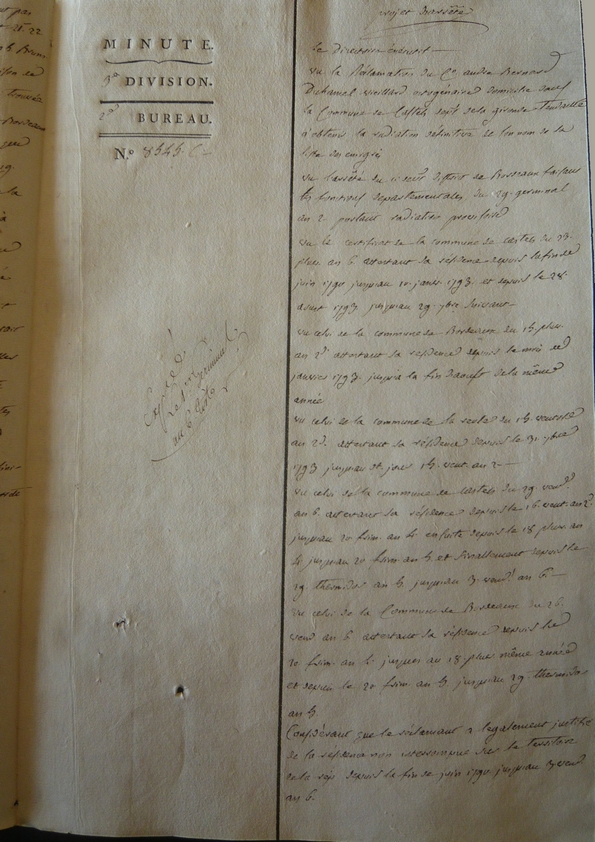 MINUTE.
3e DIVISION.
BUREAU.
N.º 8545
Expédié
Le
germinal
au 6
projet d'arrêté
Le Directoire exécutif
vu la Réclamation du Cen andré Bernard
Duhamel vieillard octogénaire domicilié dans
la Commune de Castets dépt de la gironde tendante
a obtenir la radiation définitive de son nom de la
liste des émigrés
vu l'arrêté du district de Bordeaux faisant
les fonctions départementales du 29 germinal
an 2 portant radiation provisoire
vu le certificat de la commune de castets du 23
pluv. an 6 attestant sa résidence depuis la fin de
juin 1790 jusqu'au 10 janv. 1793 et depuis le 28
aout 1793 jusqu'au 29 7bre suivant
vu celui de la commune de Bordeaux du 15 pluv.
an 2d. attestant la résidence depuis le mois de
janvier 1793 jusqu'a la fin d'aoust de la même
année
vu celui de la commune de la du 15 ventose
an 2d. attestant sa résidence depuis le 7bre
1793 jusqu'au dt jour 15 vent. an 2
vu celui de la commune de Castets du 29 vend.
an 6 attestant sa résidence depuis le 16 vent. an 2
jusqu'au 20 frim. an 4 ensuite depuis le 18 pluv. an
4 jusqu'au 20 frim. an 5 et actuellement depuis le
29 thermidor an 5 jusqu'au 3 vend. an 6
vu celui de la Commune de Bordeaux du 26
vend an 6 attestant sa résidence depuis le
20 frim. an 4 jusques au 18 pluv même année
et depuis le 20 frim an 5 jusqu'au 29 thermidor
an 5.
Considérant que le réclamant a légalement justifié
de sa résidence non interrompue sur le territoire
de la rép. depuis la fin de juin 1790 jusqu'au 3 vend
an 6.